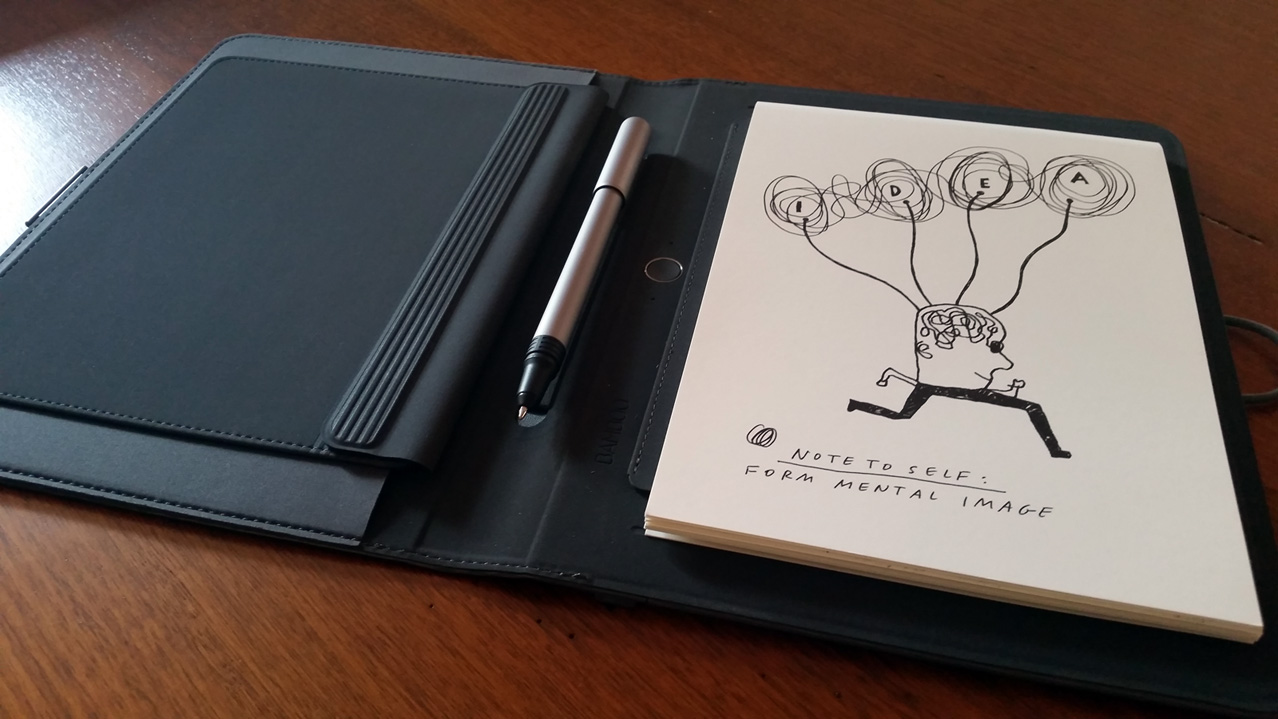 I D E A
NOTE TO SELF:
FORM MENTAL IMAGE